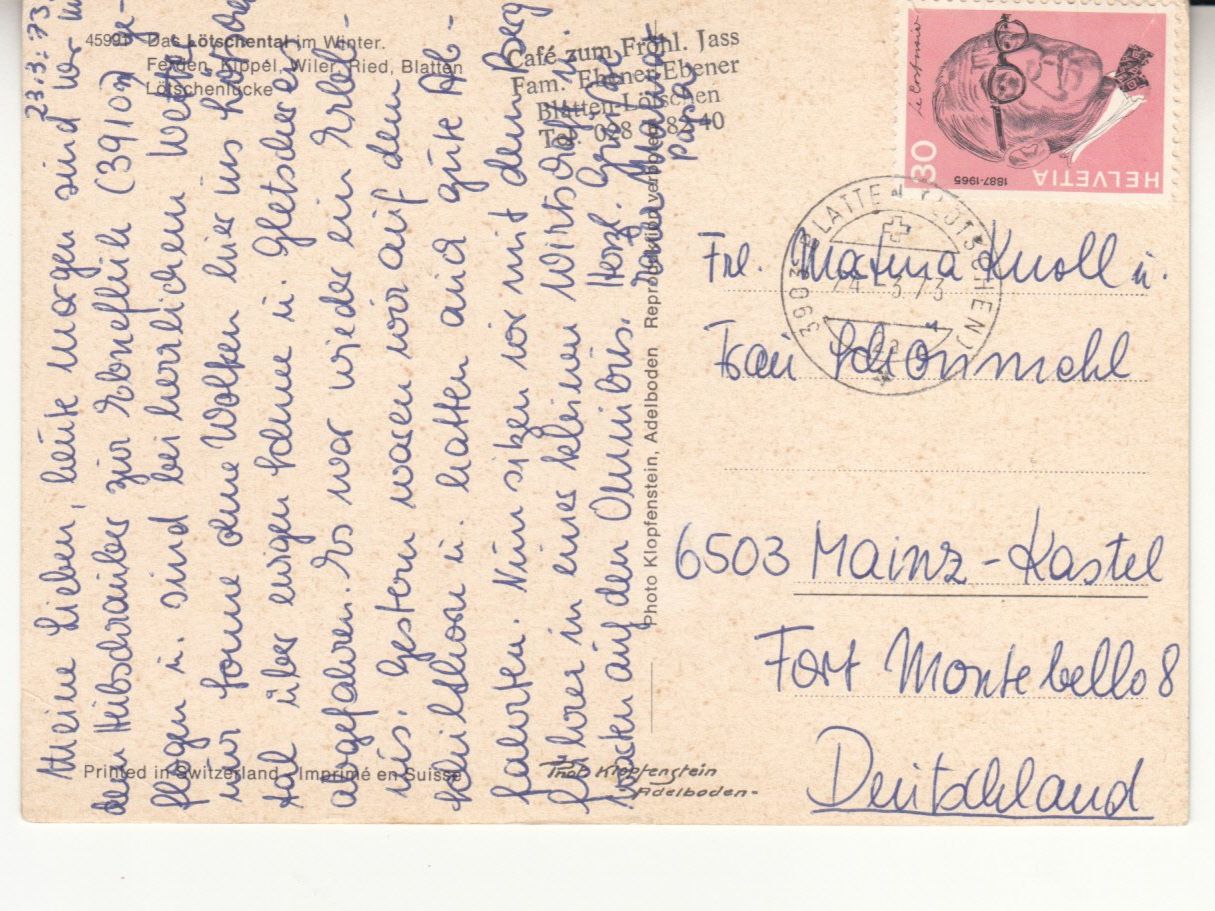 45991 Das Lötschental im Winter.
Ferden, Kippel, Wiler, Ried, Blatten
Lötschenlücke
Café zum Fröhl. Jass
Fam. Ebener-Ebener
Blatten-Lötschen
Tel. 028 5 82 40
HELVETIA
1887-1965
30
3903 BLATTEN (LÖTSCHEN)
24. 3. 73
23.3.73
Meine Lieben, heute morgen sind wir mit
dem Hubschrauber zur Ebnefluh (3910 m) ge-
flogen u. sind bei herrlichem Wetter,
nur Sonne ohne Wolken hier ins Lötschen-
tal über ewigen Schnee u. Gletschereis
abgefahren. Es war wieder ein Erleb-
nis. Gestern waren wir auf dem
hatten auch gute Ab-
fahrten. Nun sitzen wir mit dem Berg
führer in einer kleinen Wirtschaft u.
warten auf den Omnibus. Herzl. Grüße
Papa
Photo Klopfenstein, Adelboden Reproduktion verboten
Frl. Martina Knoll u.
Frau Schönmehl
6503 Mainz-Kastel
Fort Montebello 8
Deutschland
Printed in Switzerland Imprimé en Suisse
Phot. Klopfenstein
Adelboden-